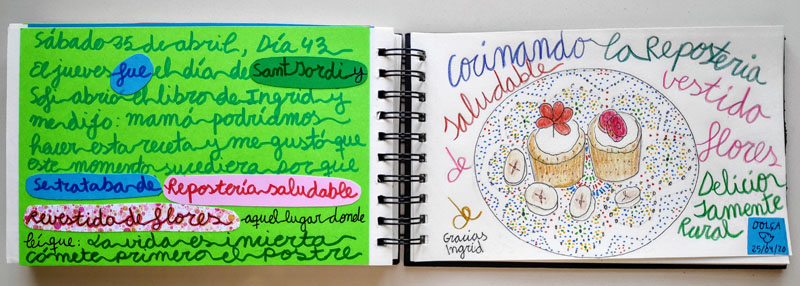 Sábado 25 de abril, Día 43
El jueves fue el día de Sant Jordi y
Sofi abrió el libro de Ingrid y
me dijo: mamá podríamos
hacer esta receta y me gustó que
este momento sucediera por que
se trataba de Repostería saludable
Revestido de flores aquel lugar donde
leí que: La vida es incierta
cómete primero el postre
Cocinando la Repostería
saludable
de
vestida
de
flores
Delicio
samente
Rural
Gracias
Ingrid
DOLÇA
25/04/20